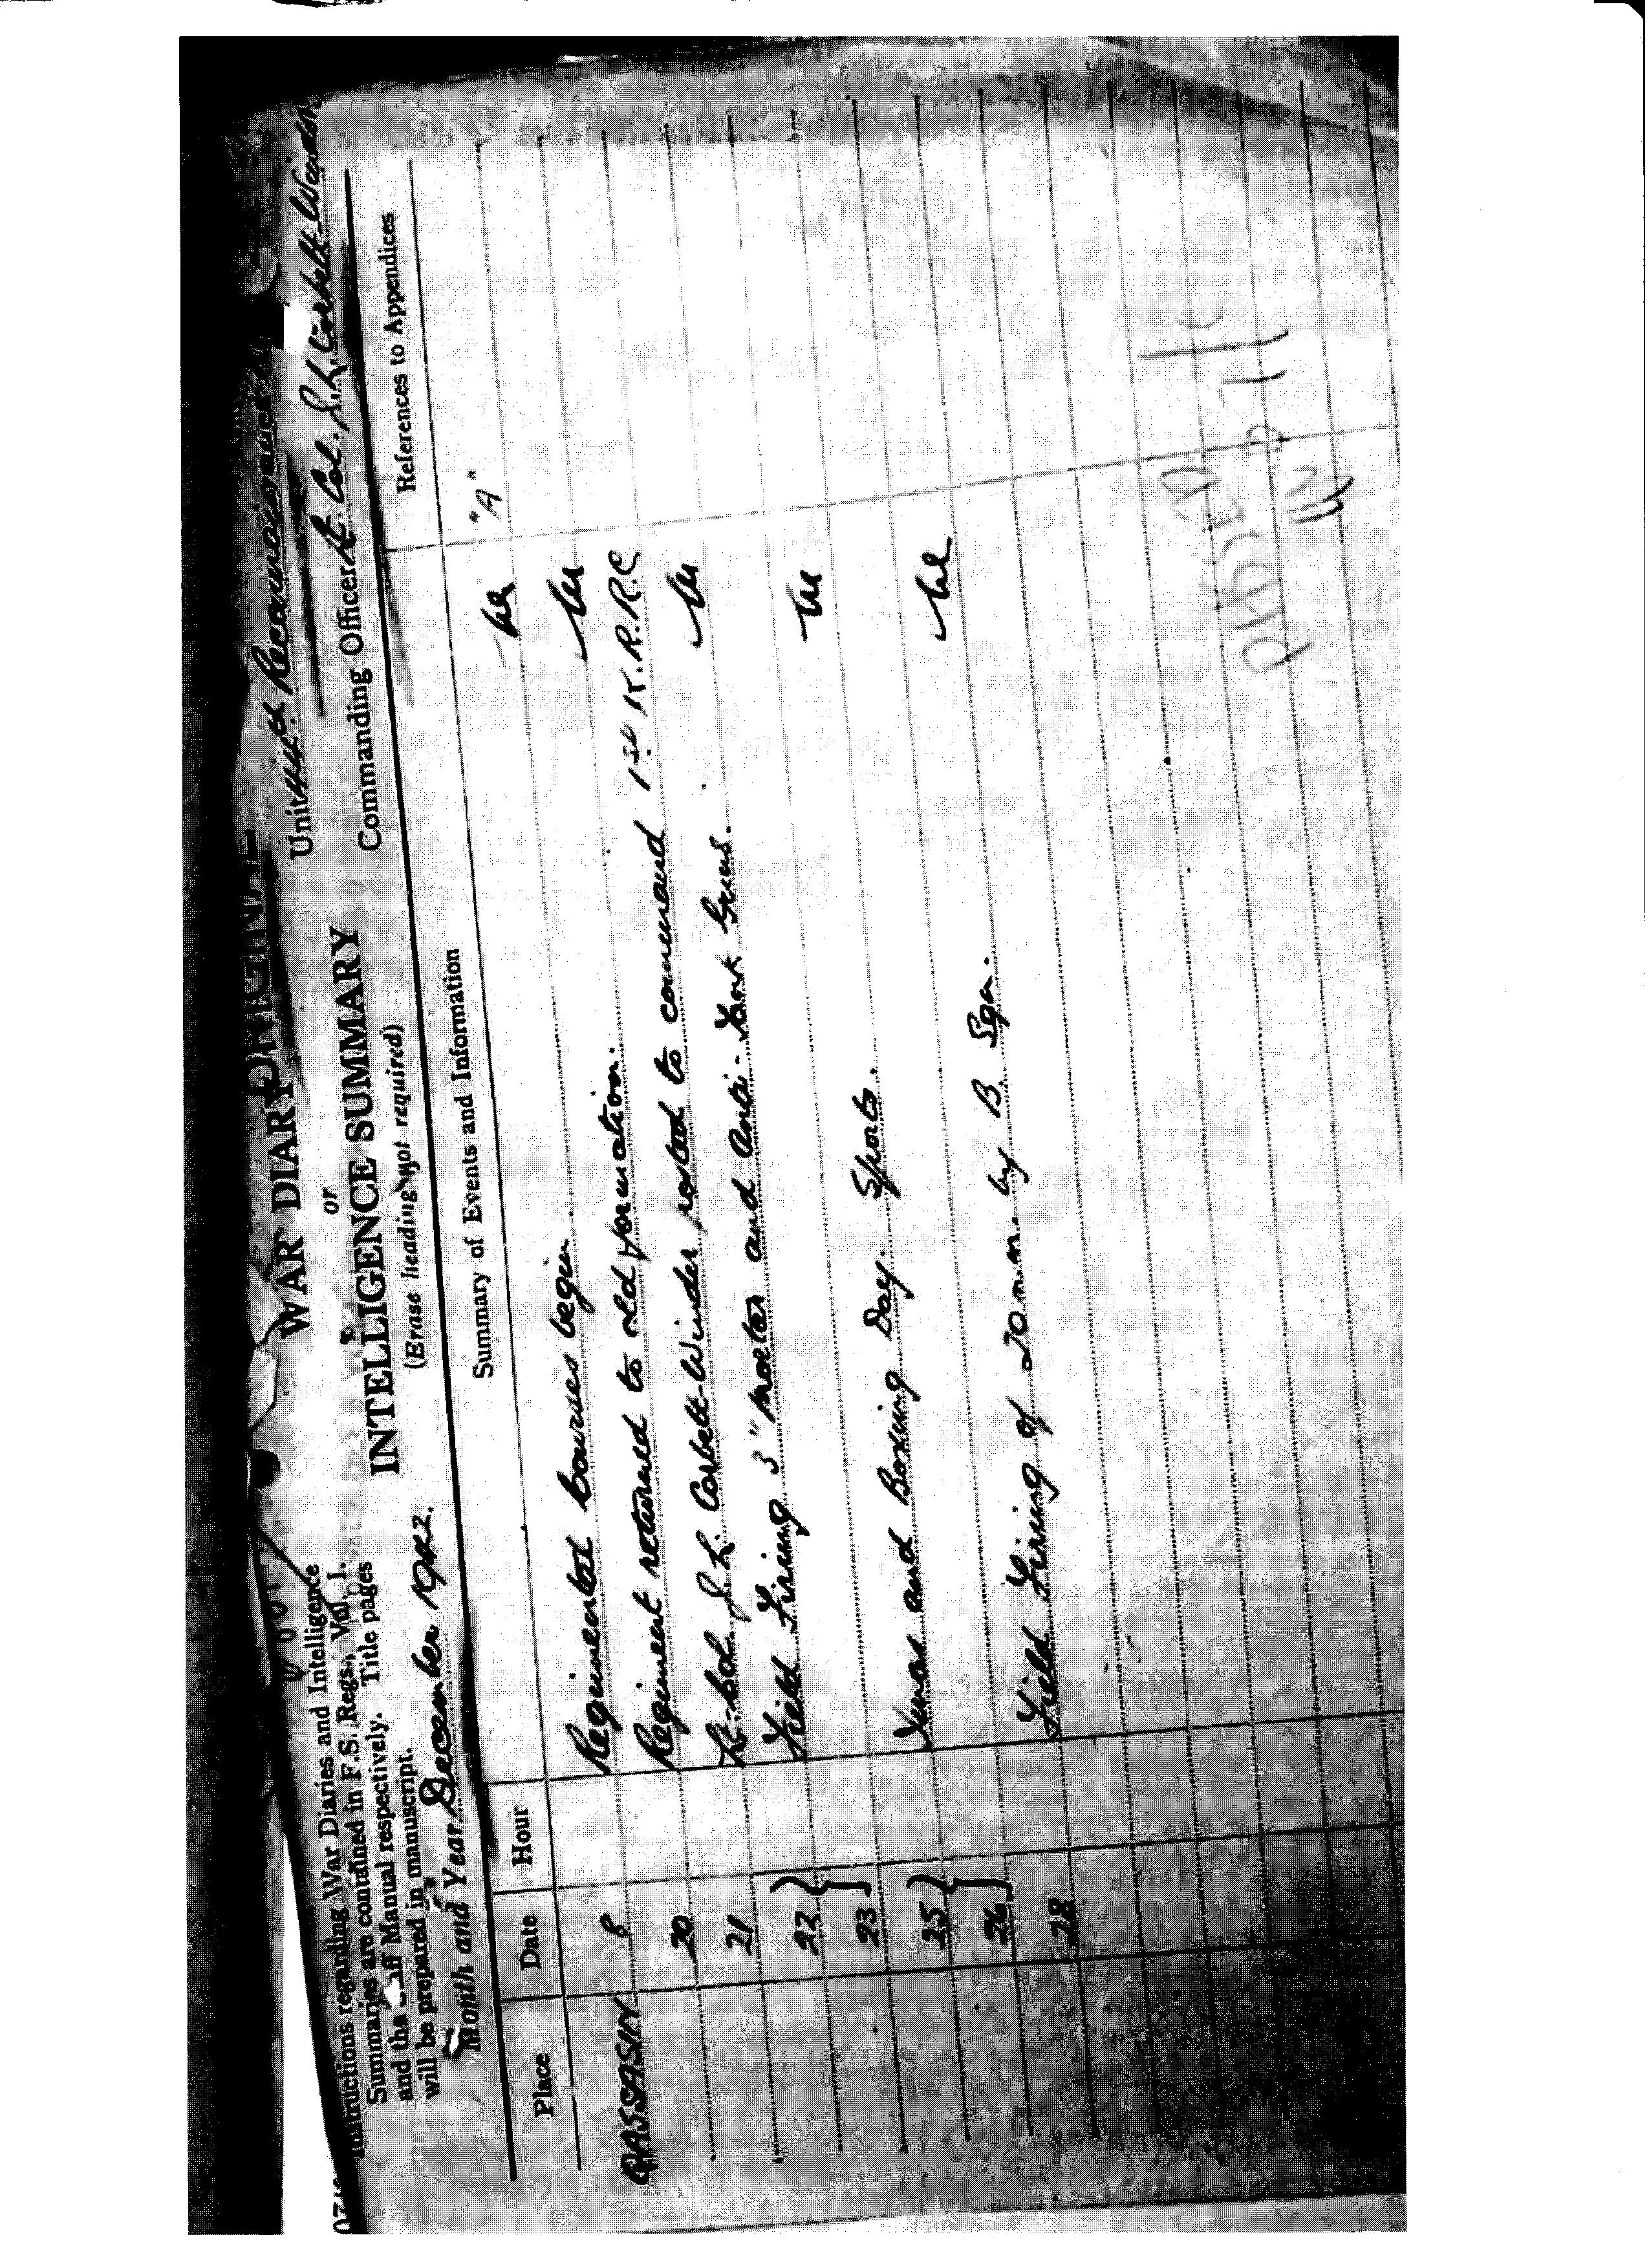 ORIGINAL
WAR DIARY
or
INTELLIGENCE SUMMARY
(Erase heading not required)
Instructions regarding War Diaries and Intelligence
Summaries are contained in F.S. Regs., Vol. I.
and the Staff Manual respectively. Title pages
will be prepared in manuscript.
Month and Year December 1942.
Unit 44th Reconnaissance
Commanding Officer Lt. Col. J.L. Corbett-Winder
Place Date Hour Summary of Events and Information References to Appendices
"A"
QASSASIN 8 Regimental courses begin.
20 Regiment returned to old formation.
21 Lt-Col. J.L. Corbett-Winder posted to command 1st K.R.R.C
22 } Field Firing 3" mortar and Anti-Tank Guns.
23 }
25 } Xmas and Boxing Day. Sports.
26 }
28 Field Firing of 20 m.m. by B Sqn.